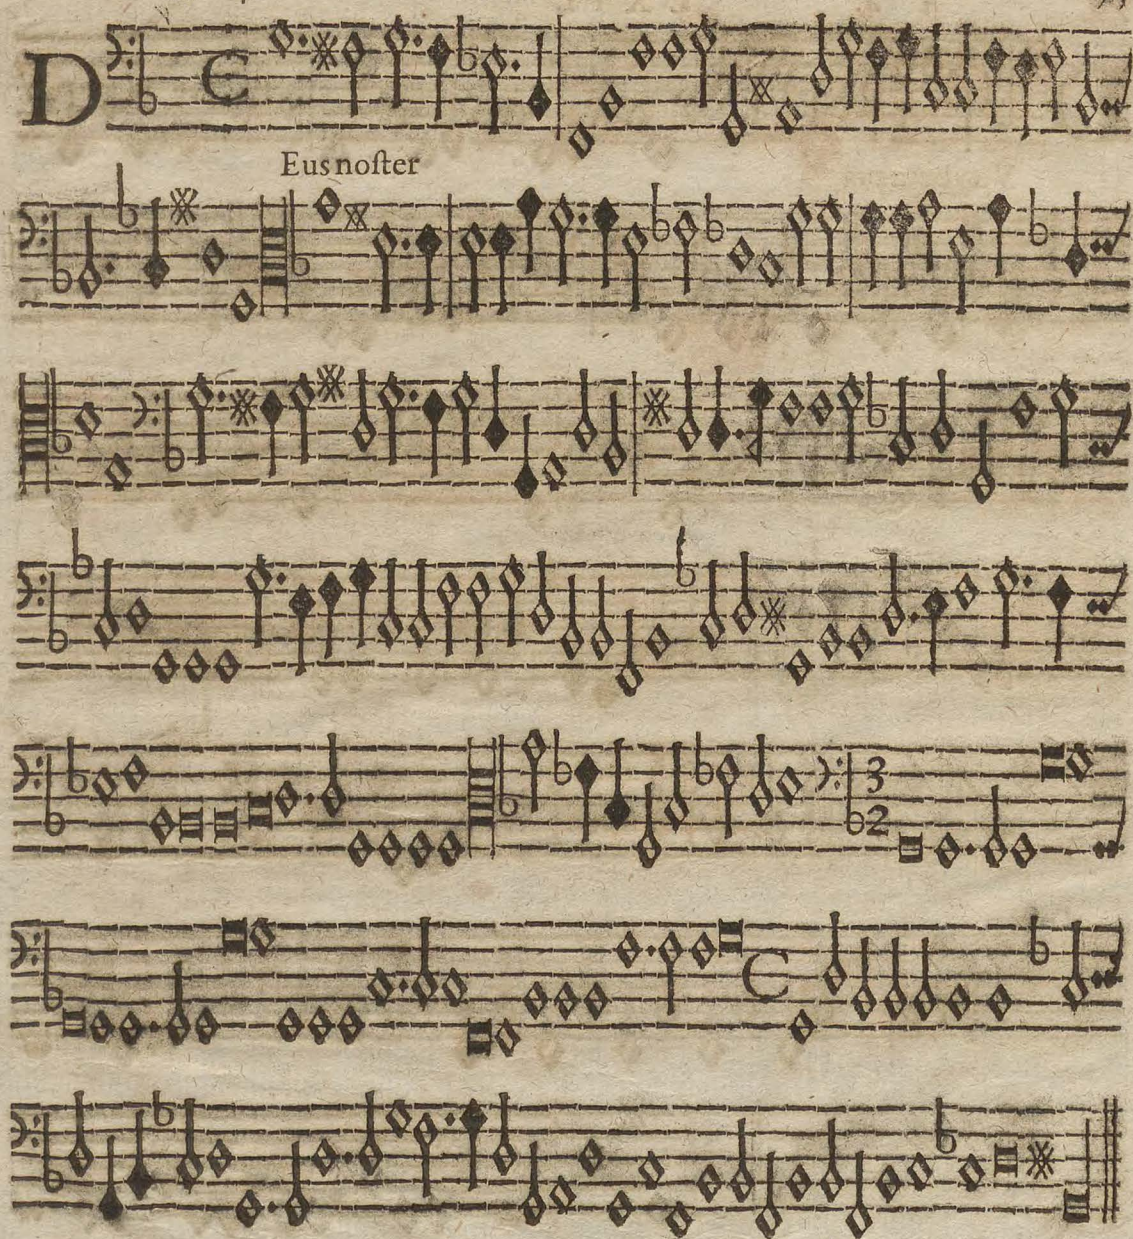 D
Eus noſter
3
2